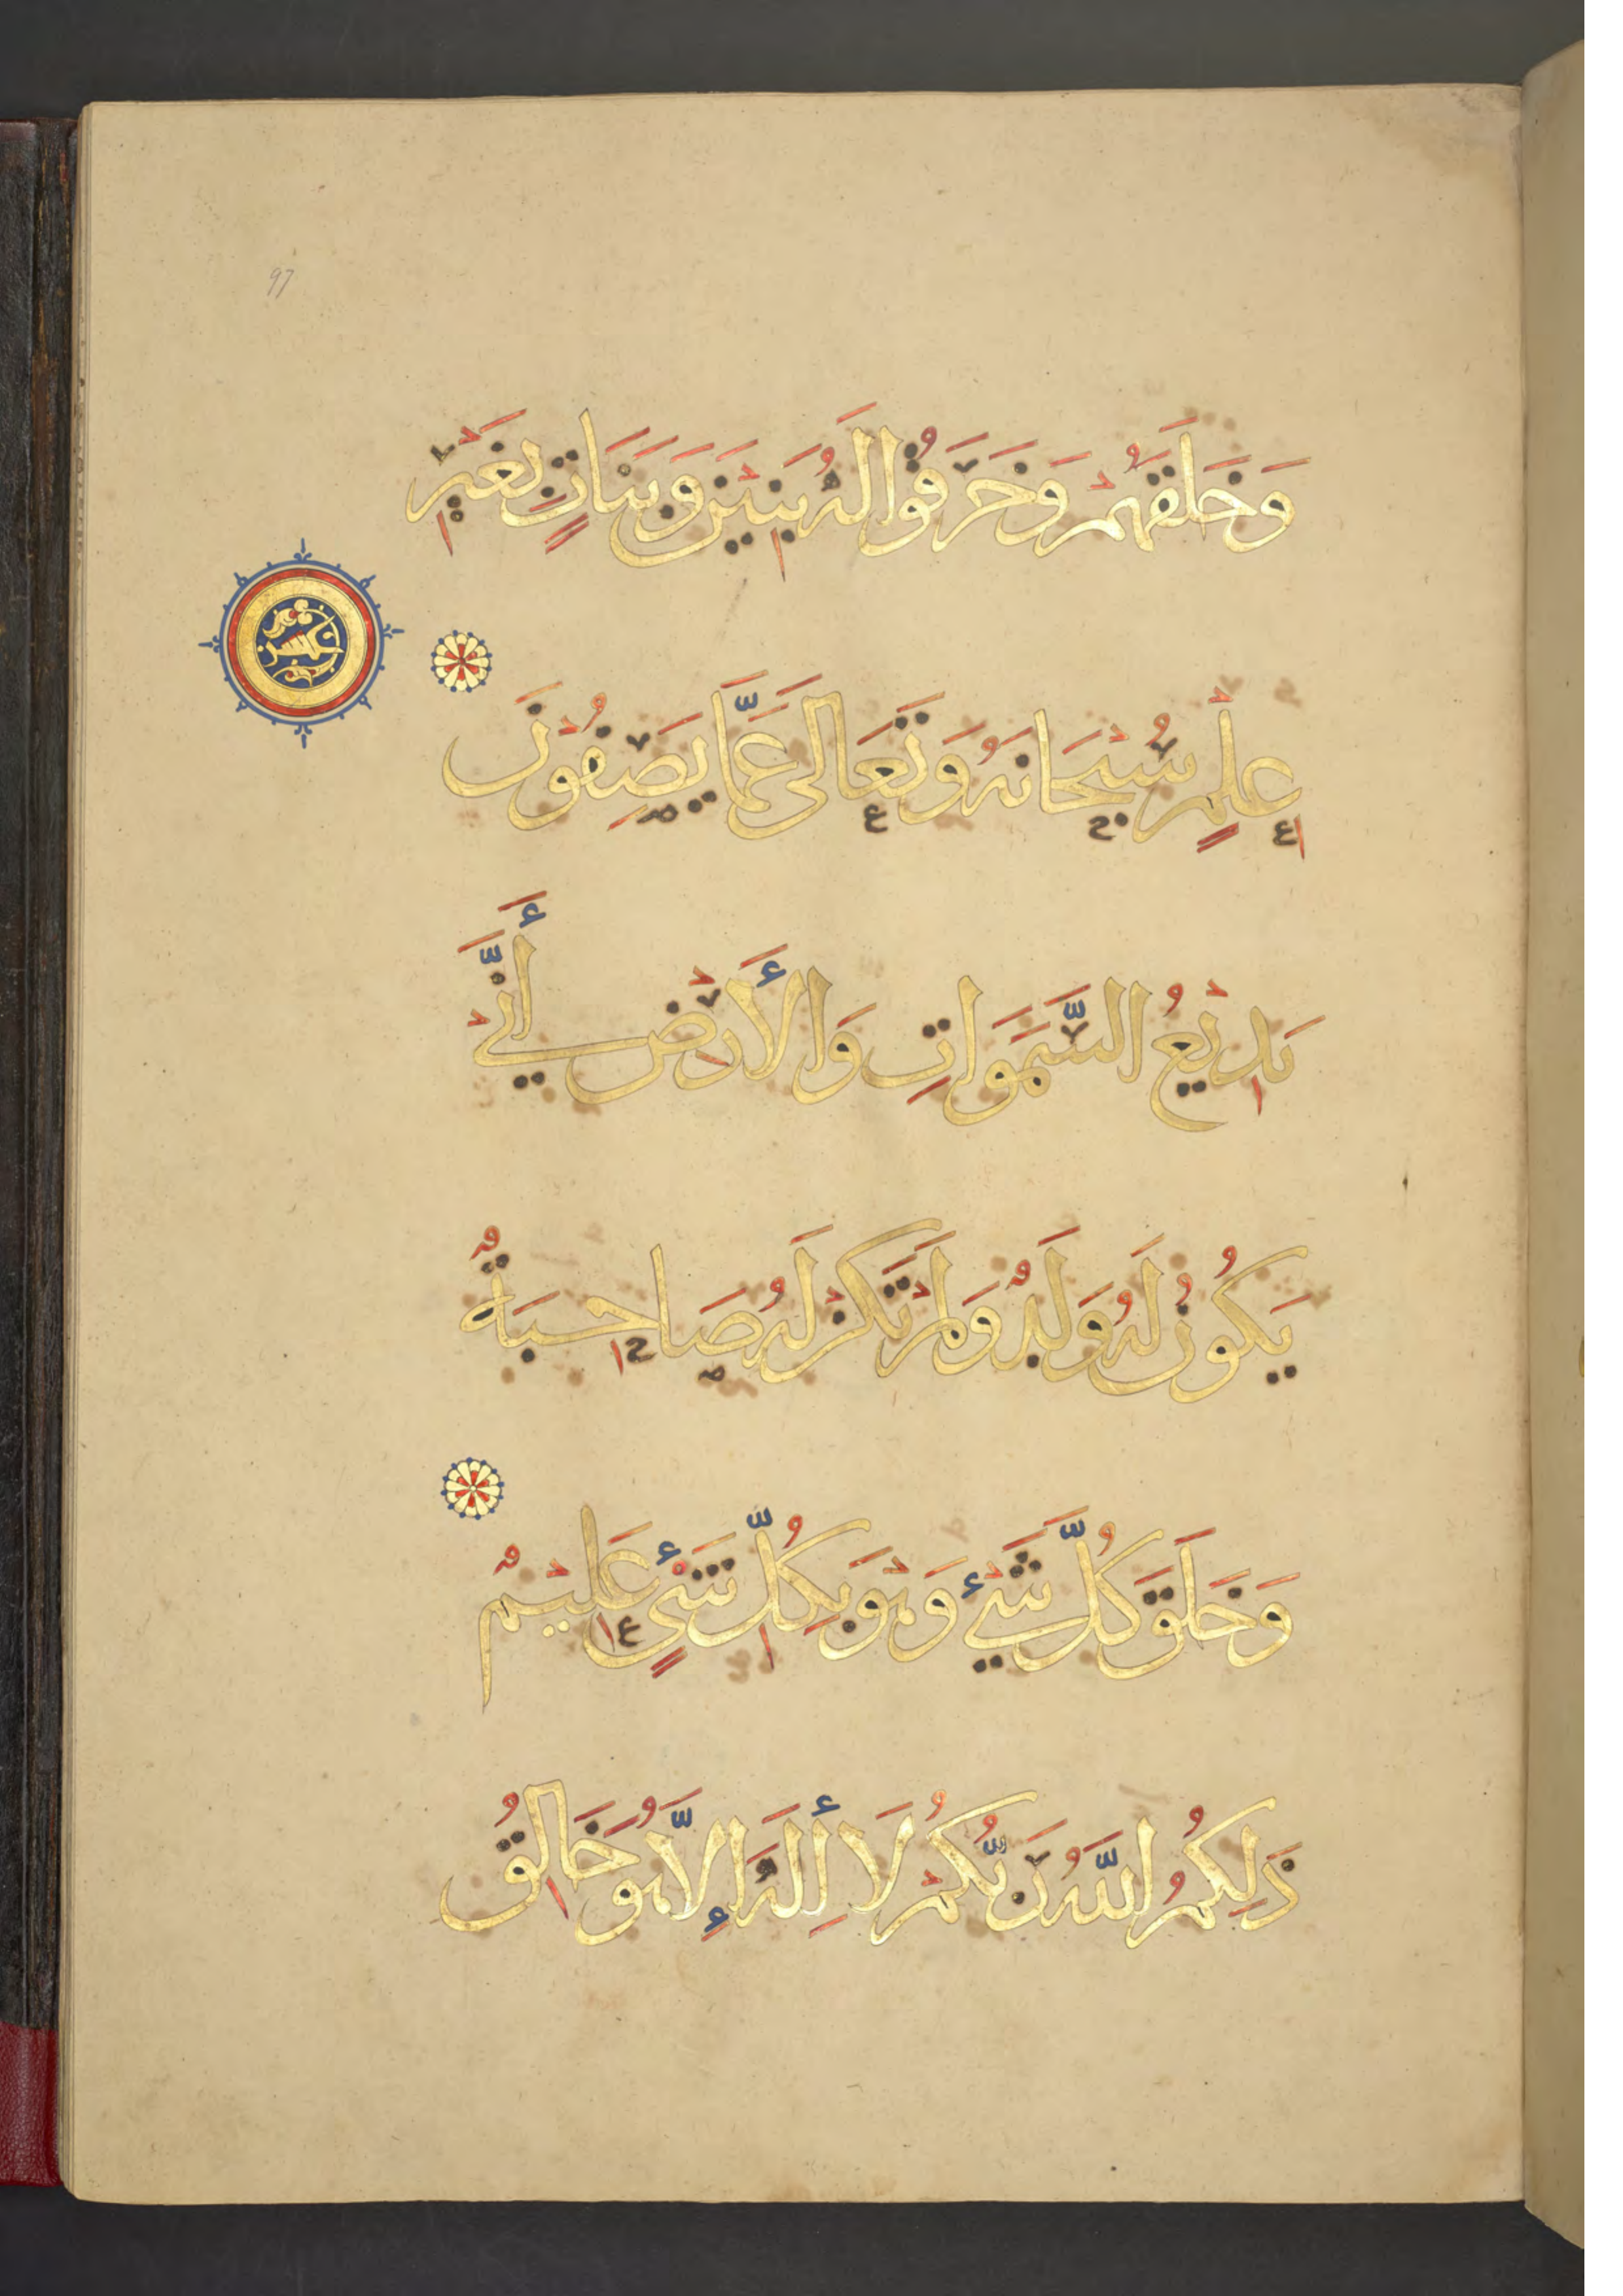 97
وَخَلَقَهُمْ وَخَرَقُوا لَهُ بَنِيْنَ وَبَنَاتٍ بِغَيْرِ
عِلْمٍ سُبْحَانَهُ وَتَعَالَى عَمَّا يَصِفُوْنَ
بَدِيْعُ السَّمَوَاتِ وَالْأَرْضِ أَنَّيْ
يَكُوْنُ لَهُ وَلَدٌ وَلَمْ تَكُنْ لَهُ صَاحِبَةٌ
وَخَلَقَ كُلَّ شَيْءٍ وَهْوَ بِكُلِّ شَيْءٍ عَلِيْمٌ
ذَلِكُمُ اللَّهُ رَبُّكُمْ لَا إِلَهَ إِلَّا هُوَ خَالِقُ